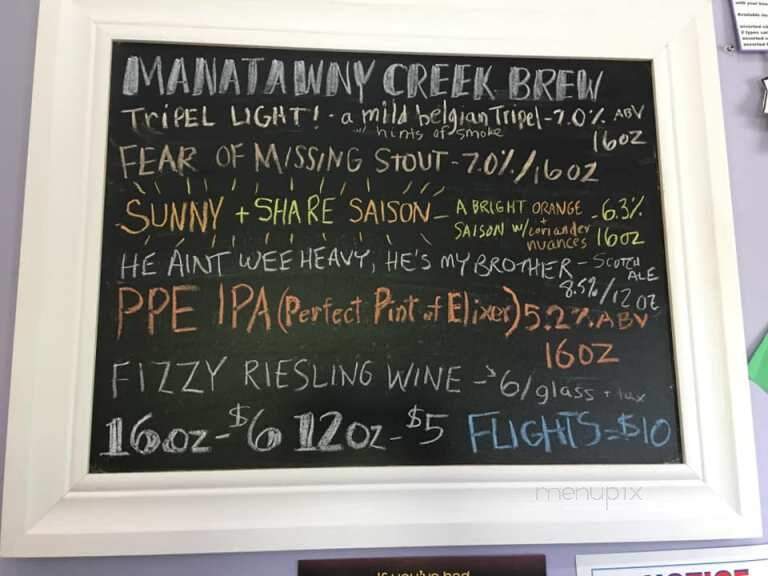 MANATAWNY CREEK BREW
TRIPEL LIGHT! - a mild belgian Tripel - 7.0% ABV
w/ hints of smoke 16oz
FEAR OF MISSING STOUT - 7.0% / 16oz
SUNNY + SHARE SAISON - A BRIGHT ORANGE - 6.3%
+
SAISON w/coriander 16oz
nuances
HE AINT WEE HEAVY, HE'S MY BROTHER - SCOTCH
ALE
8.5% / 12oz
PPE IPA (Perfect Pint of Elixer) 5.2% ABV
16OZ
FIZZY RIESLING WINE - $6/glass + tax
16oz - $6 12oz - $5 FLIGHTS = $10
menupix
If you've had
NOTICE